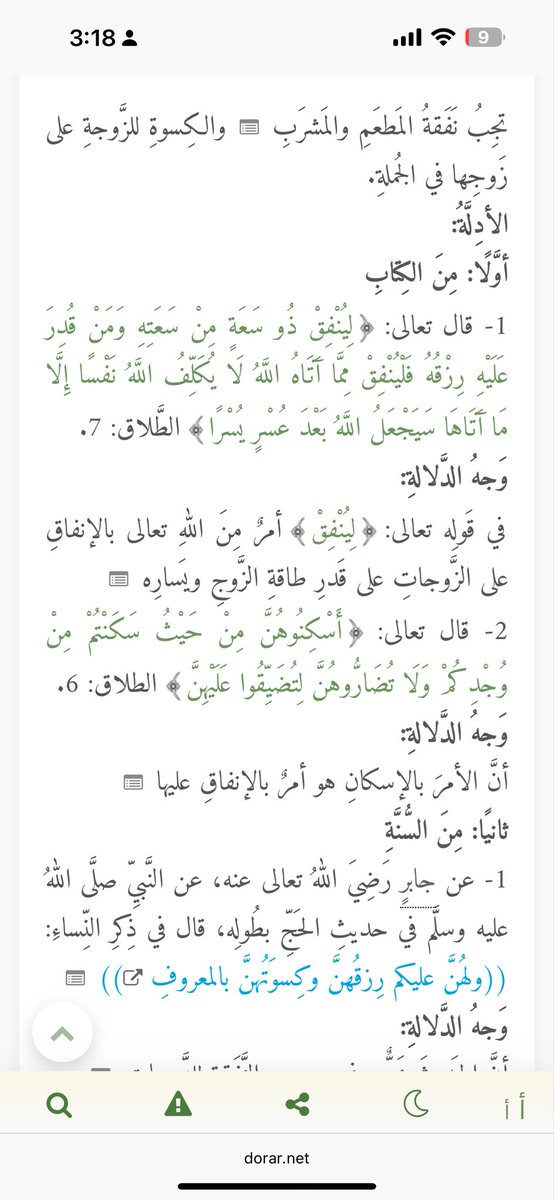 3:18
9
تجِبُ نَفَقةُ المَطعَمِ والمَشرَبِ والكِسوةِ للزَّوجةِ على
زَوجِها في الجُملةِ.
الأدِلَّةُ:
أوَّلًا: مِنَ الكِتابِ
1- قال تعالى: ﴿لِيُنْفِقْ ذُو سَعَةٍ مِنْ سَعَتِهِ وَمَنْ قُدِرَ
عَلَيْهِ رِزْقُهُ فَلْيُنْفِقْ مِمَّا آَتَاهُ اللَّهُ لَا يُكَلِّفُ اللَّهُ نَفْسًا إِلَّا
مَا آَتَاهَا سَيَجْعَلُ اللَّهُ بَعْدَ عُسْرٍ يُسْرًا﴾ الطَّلاق: 7.
وَجهُ الدَّلالةِ:
في قَولِه تعالى: ﴿لِيُنْفِقْ﴾ أمرٌ مِنَ اللهِ تعالى بالإنفاقِ
على الزَّوجاتِ على قَدرِ طاقةِ الزَّوجِ ويَسارِه
2- قال تعالى: ﴿أَسْكِنُوهُنَّ مِنْ حَيْثُ سَكَنْتُمْ مِنْ
وُجْدِكُمْ وَلَا تُضَارُّوهُنَّ لِتُضَيِّقُوا عَلَيْهِنَّ﴾ الطلاق: 6.
وَجهُ الدَّلالةِ:
أنَّ الأمرَ بالإسكانِ هو أمرٌ بالإنفاقِ عليها
ثانيًا: مِنَ السُّنَّةِ
1- عن جابرٍ رَضِيَ اللهُ تعالى عنه، عن النَّبيِّ صلَّى اللهُ
عليه وسلَّم في حديثِ الحَجِّ بطُولِه، قال في ذِكرِ النِّساءِ:
((ولهُنَّ عليكم رِزقُهنَّ وكِسوَتُهنَّ بالمعروفِ))
وَجهُ الدَّلالةِ:
أ أ
dorar.net